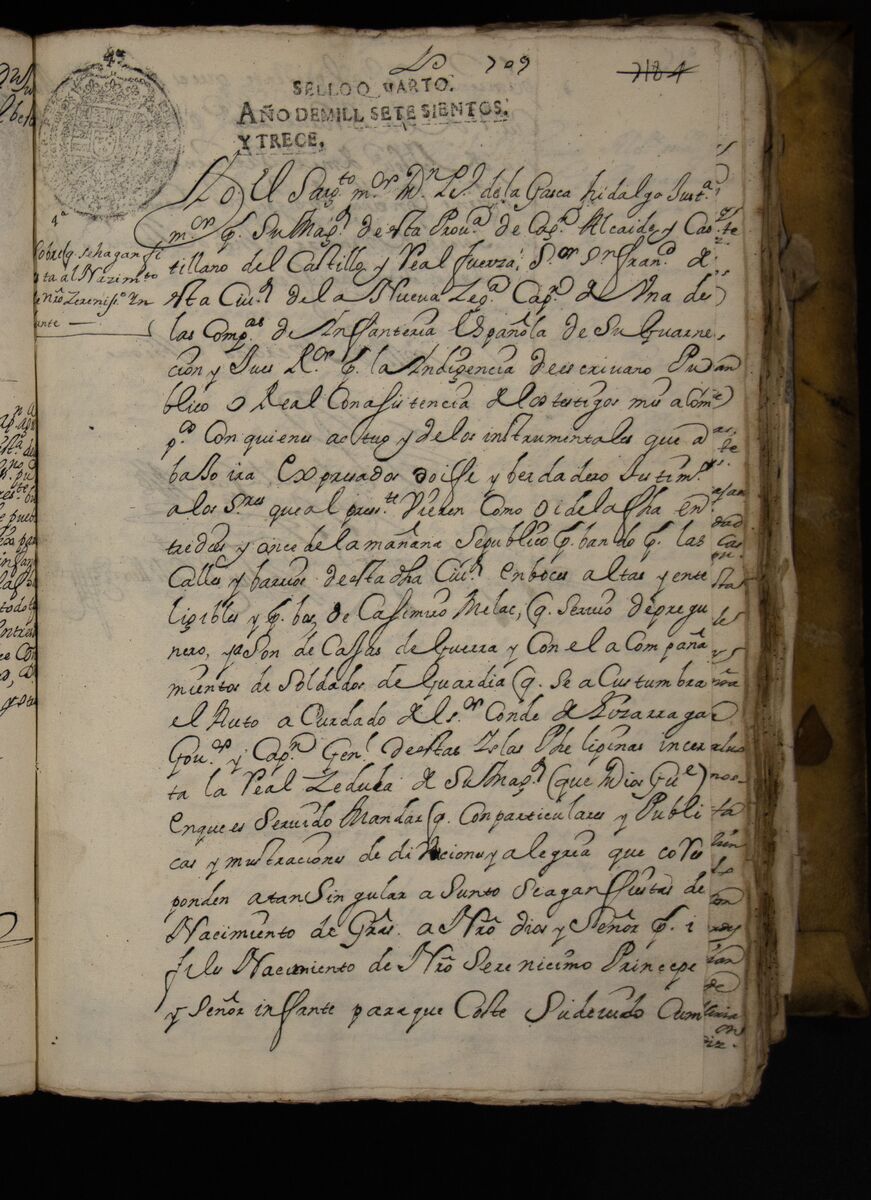 709
7184
SELLO QVARTO.
AÑO DE MILL SETESIENTOS,
Y TRECE,
4ª
Sobre q. se hagan fi
esta al Nazimto
de Nrō Zerenisº. In
fante —
Yo El Sargto mor Dn de la Gasca hidalgo Justª
mor pr. Su Magd de esta Provª de Capn Alcaide y Cas
tillano del Castillo y Real fuerza Sor Sn franº de
esta Ciud de la Nueva Zegª Capn de Una de
las Compas de Ynfanteria Española de Su Guarne
cion y Jues Ror pr. la Yndigencia de escrivano Pu
blico o Real Con asistencia de los testigos mis a Com
pdos Con quienes actuo y de los instrumentales que a
bajo ira Expresados doi ffe y berdadero Testimº
a los Sres que al preste Vieren Como oi de la fha en
tre dies y once de la mañana Se publico pr. bando pr. las
Calles y barrios de esta dha Ciud en boces altas y ente
ligibles y pr. bos de Casimiro Melac, q. Servio de pregu
nero, y a Son de Caxas de Guerra y Con el a Compaña
mientos de Soldados de Guardia q. Se a Custumbra
el Auto a Cordado del Sor Conde de Lizarraga
Gouor y Capn Genl de estas Yslas Phelipinas incer
ta la Real Zedula de Su Magd (que Dios Gue)
en que es Servido Mandar q. Con particulares y Publi
cas y mustraciones de diversiones y alegria que coRes
ponden a tan Singular a Sunto Se agan fiestas de
Nacimiento de Gras. a Nrō dios y Señor pr. i
felis Nacimiento de Nrō Serenicimo Principe
y Señor infante para que Coste Su devido Cum